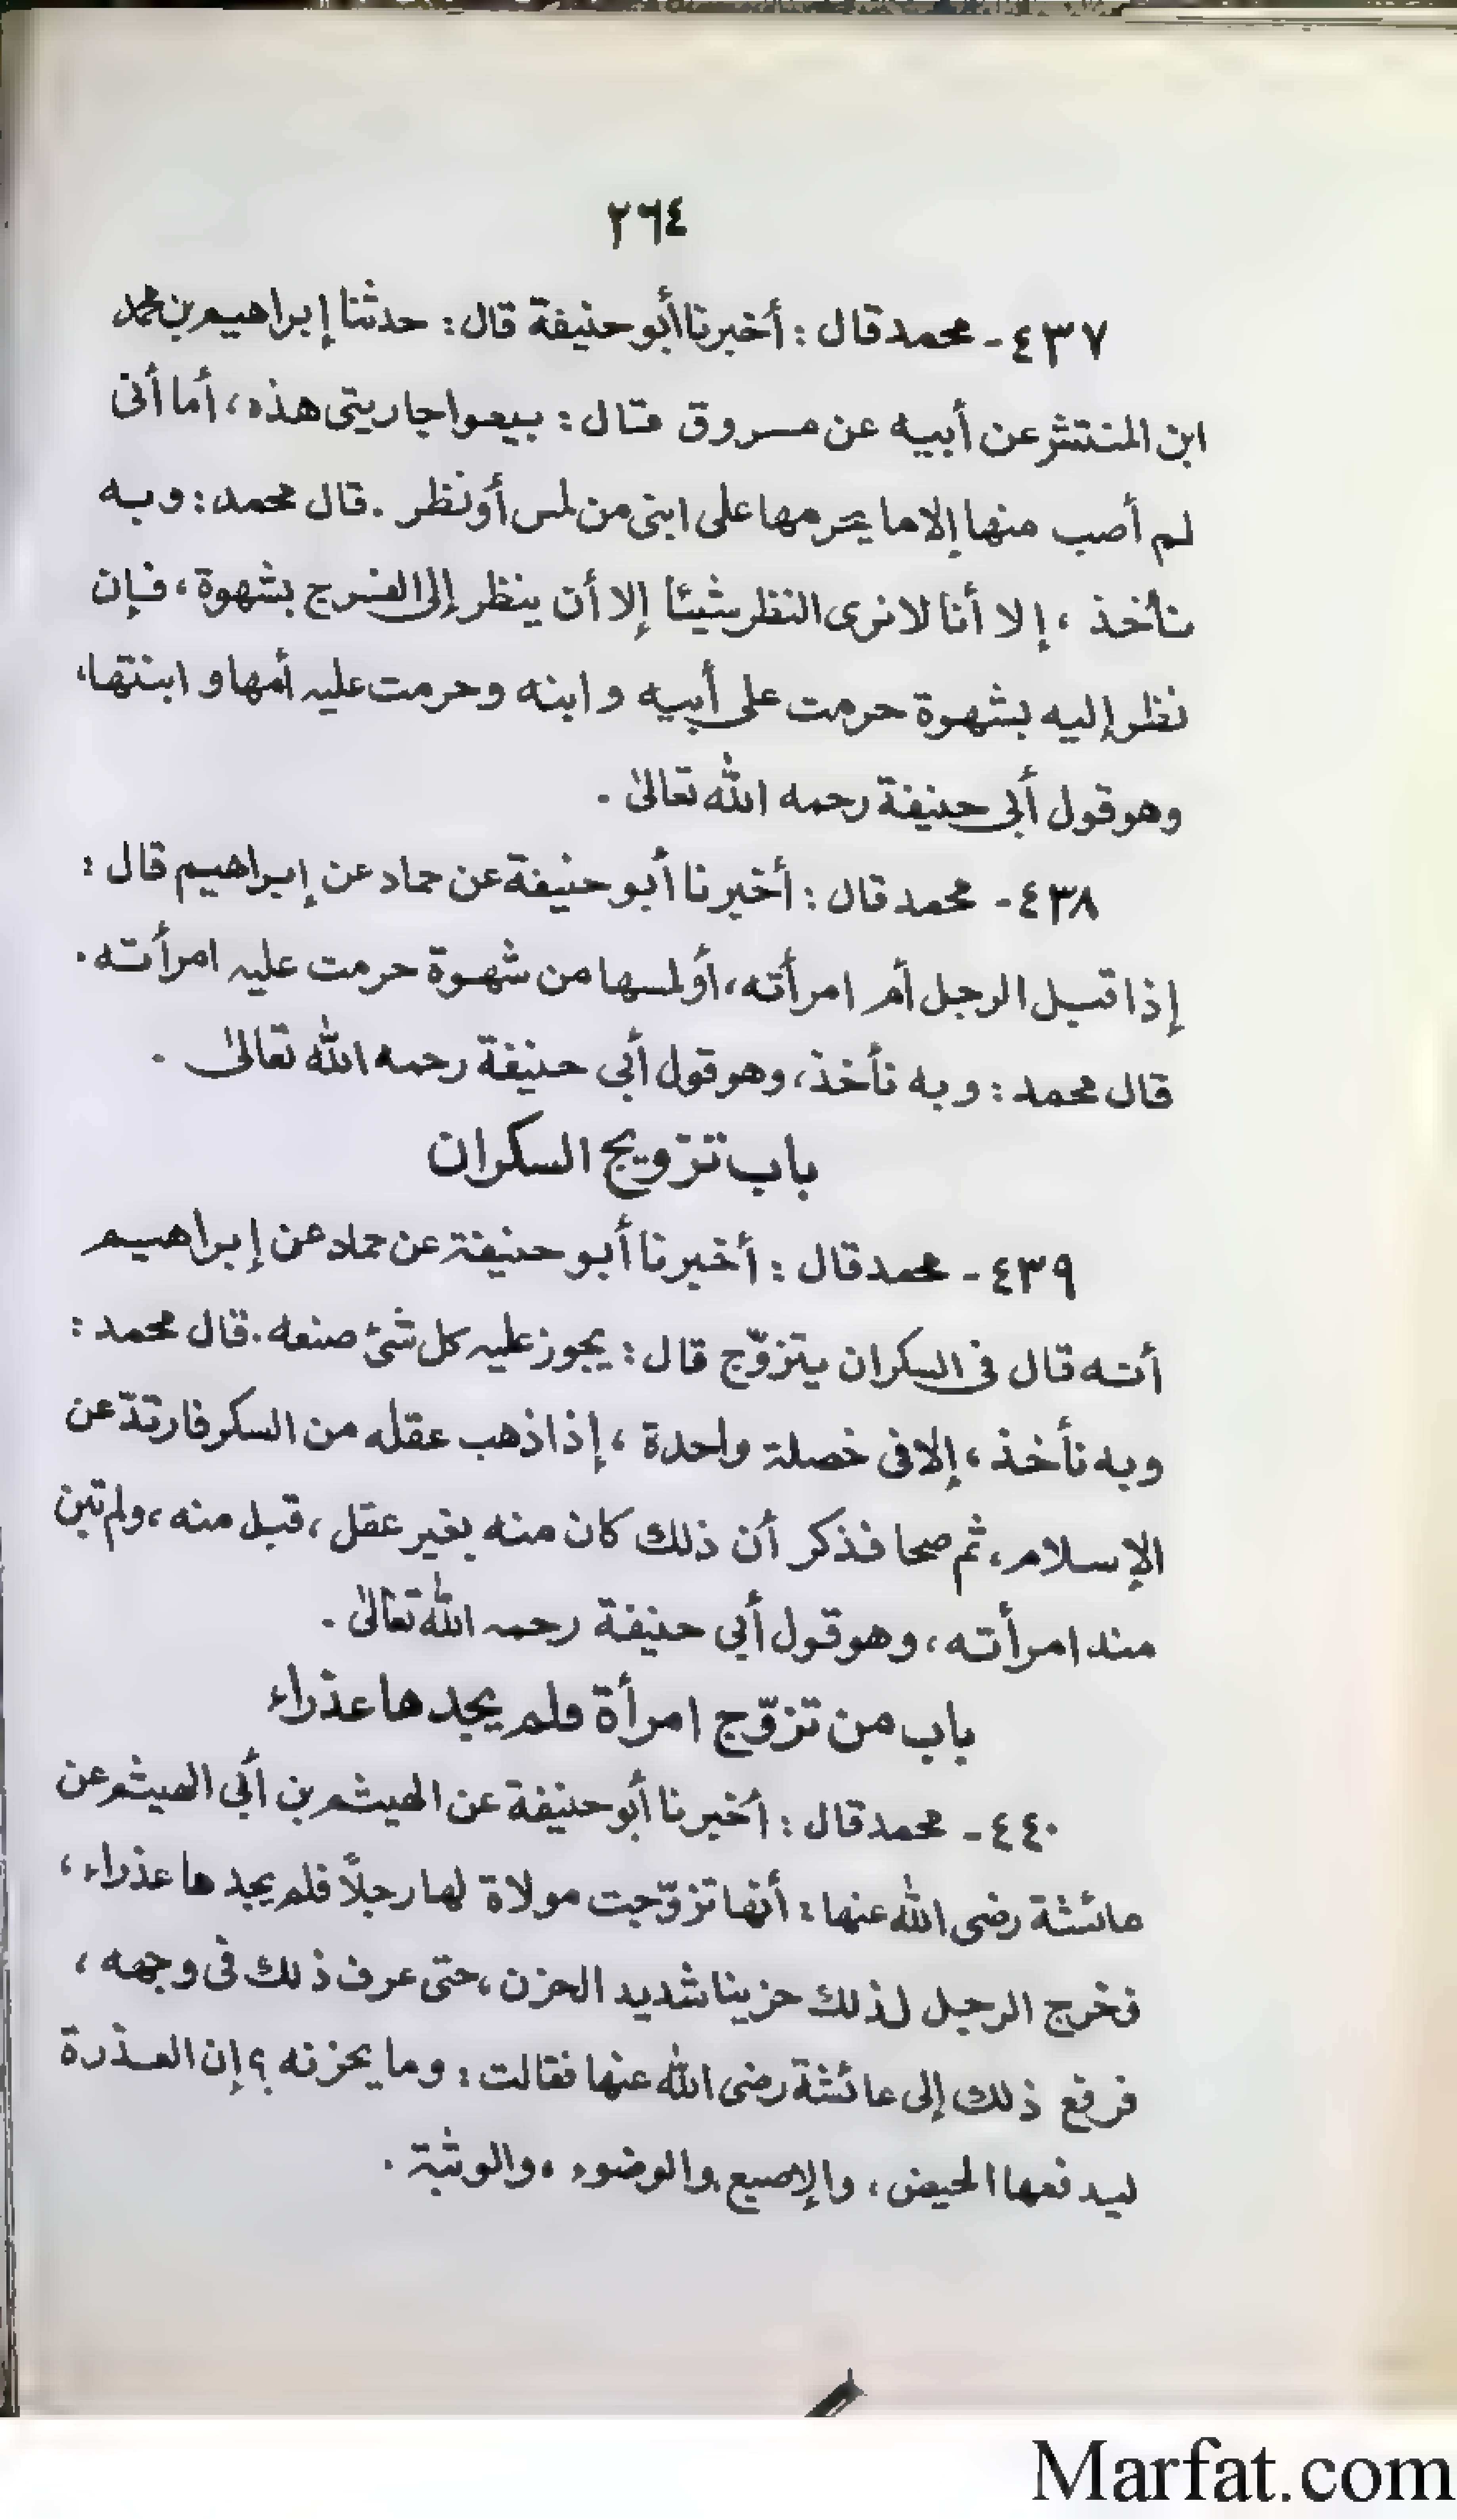 ٢٦٤
٤٣٧- محمد قال: أخبرنا أبو حنيفة قال: حدثنا إبراهيم بن محمد
ابن المنتشر عن أبيه عن مسروق قال: بيعوا جاريتى هذه، أما أنى
لم أصب منها إلا ما يحرمها على ابنى من لمس أو نظر. قال محمد: وبه
نأخذ، إلا أنا لا نرى النظر شيئا إلا أن ينظر إلى الفرج بشهوة، فإن
نظر إليه بشهوة حرمت على أبيه وابنه وحرمت عليه أمها و ابنتها،
وهو قول أبى حنيفة رحمه الله تعالىٰ.
٤٣٨- محمد قال: أخبرنا أبو حنيفة عن حماد عن إبراهيم قال:
إذا قبل الرجل أم امرأته، أو لمسها من شهوة حرمت عليه امرأته.
قال محمد: وبه نأخذ، وهو قول أبى حنيفة رحمه الله تعالىٰ.
باب تزويج السكران
٤٣٩- محمد قال: أخبرنا أبو حنيفة عن حماد عن إبراهيم
أنه قال فى السكران يتزوّج قال: يجوز عليه كل شئ صنعه. قال محمد:
وبه نأخذ، إلا فى خصلة واحدة، إذا ذهب عقله من السكر فارتدّ عن
الإسلام، ثم صحا فذكر أن ذلك كان منه بغير عقل، قبل منه، ولم تبن
منه امرأته، وهو قول أبى حنيفة رحمه الله تعالىٰ.
باب من تزوّج امرأة فلم يجدها عذراء
٤٤٠- محمد قال: أخبرنا أبو حنيفة عن الهيثم بن أبى الهيثم عن
عائشة رضى الله عنها: أنها تزوّجت مولاة لها رجلاً فلم يجدها عذراء،
فخرج الرجل لذلك حزينا شديد الحزن، حتى عرف ذلك فى وجهه،
فرفع ذلك إلى عائشة رضى الله عنها فقالت: وما يحزنه؟ إن العذرة
ليدفعها الحيض، والإصبع، والوضوء، والوثبة.
Marfat.com